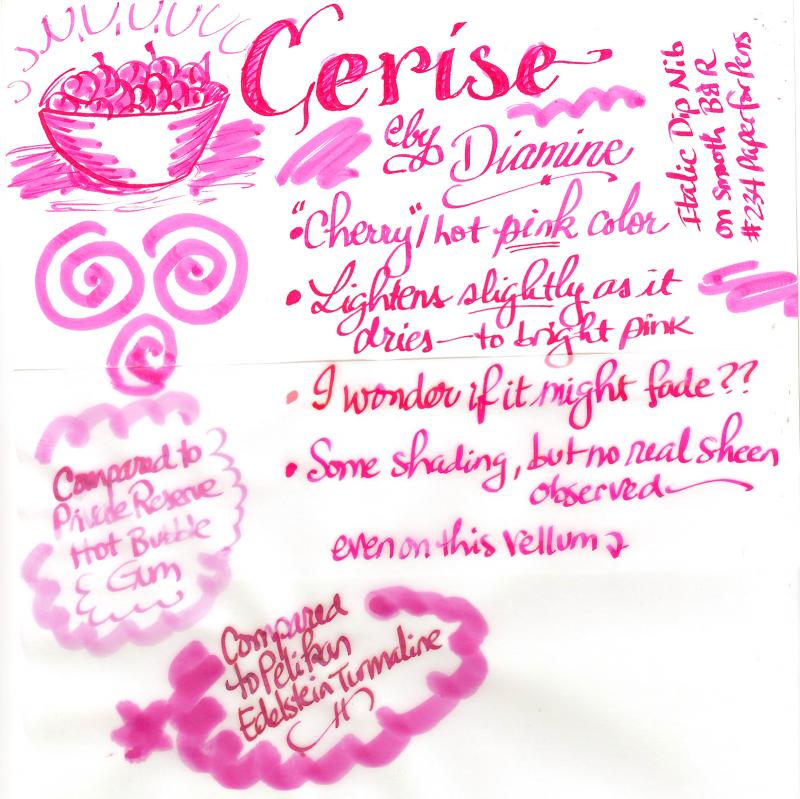 Cerise
by
Diamine
• "Cherry"/hot pink color
• Lightens slightly as it
dries—to bright pink
• I wonder if it might fade??
• Some shading, but no real sheen
observed
even on this vellum
Italic Dip Nib
on Smooth B&R
#234 Paper for Pens
Compared to
Private Reserve
Hot Bubble
Gum
Compared
to Pelikan
Edelstein Turmaline